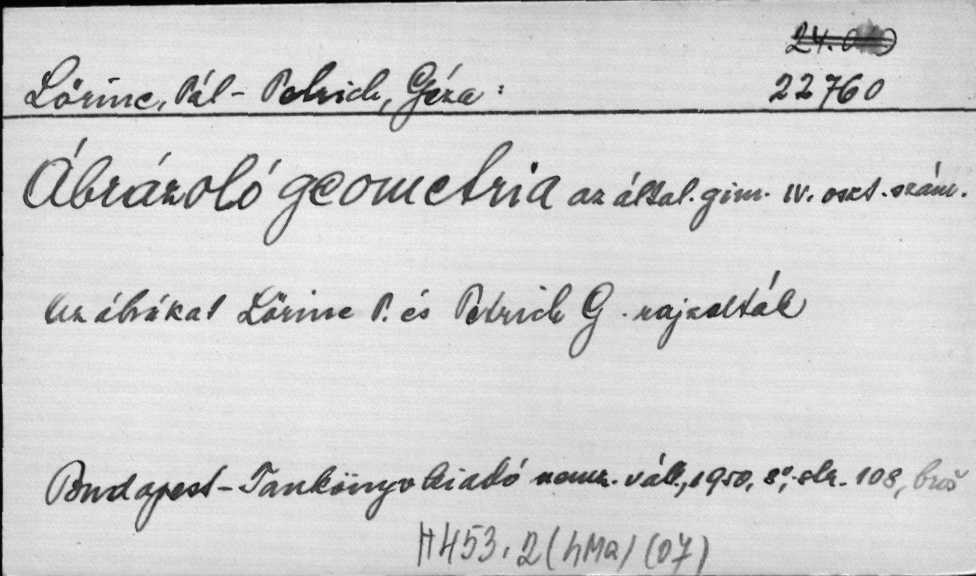 22760
Lörinc, Pál - Petrich, Géza:
Ábrázoló geometria az által. gim. IV. oszt. szám.
Az ábrákat Lörinc P. és Petrich G. rajzolták
Budapest - Tankönyvkiadó nemz. váll., 1950, 8°, str. 108, brož
H453.2 (hMa) (07)